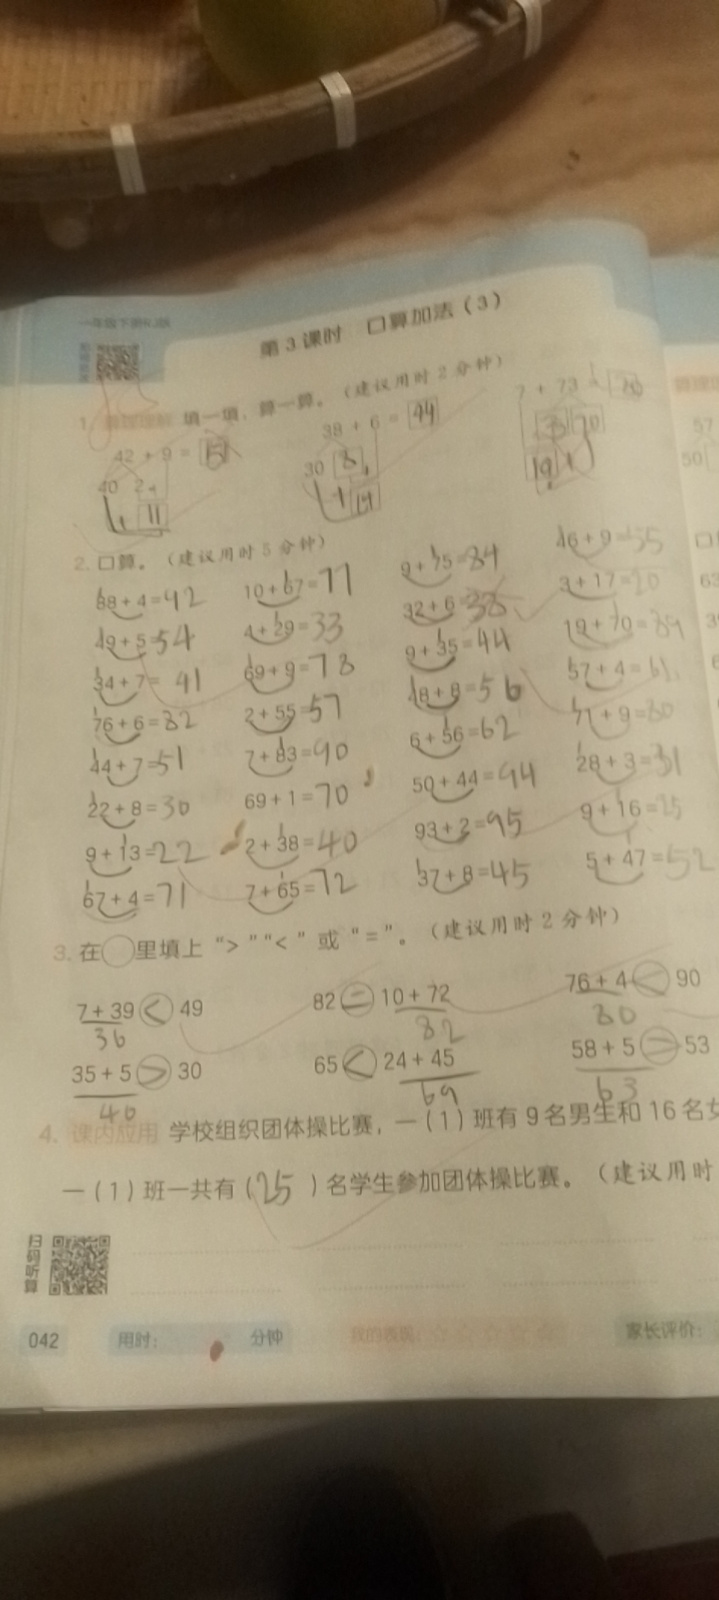 第3课时 口算加法（3）
1. 填一填，算一算。（建议用时2分钟）
42+9=51 38+6=44 7+73=
40 2 30 8
11 14 10
2. 口算。（建议用时5分钟）
88+4=92 10+67=77 9+75=84 46+9=55
49+5=54 4+29=33 32+6=38 3+17=20
34+7=41 69+9=78 9+35=44 19+70=89
76+6=82 2+55=57 48+8=56 57+4=61
44+7=51 7+83=90 6+56=62 71+9=80
22+8=30 69+1=70 50+44=94 28+3=31
9+13=22 2+38=40 93+2=95 9+16=25
67+4=71 7+65=72 37+8=45 5+47=52
3. 在○里填上“>”“<”或“=”。（建议用时2分钟）
7+39<49 82=10+72 76+4<90
36 82 80
35+5>30 65<24+45 58+5 53
40 69 63
4. 课内应用 学校组织团体操比赛，一（1）班有9名男生和16名
一（1）班一共有（25）名学生参加团体操比赛。（建议用时
扫码听算
042 用时： 分钟 我的表现： 家长评价：
57
50